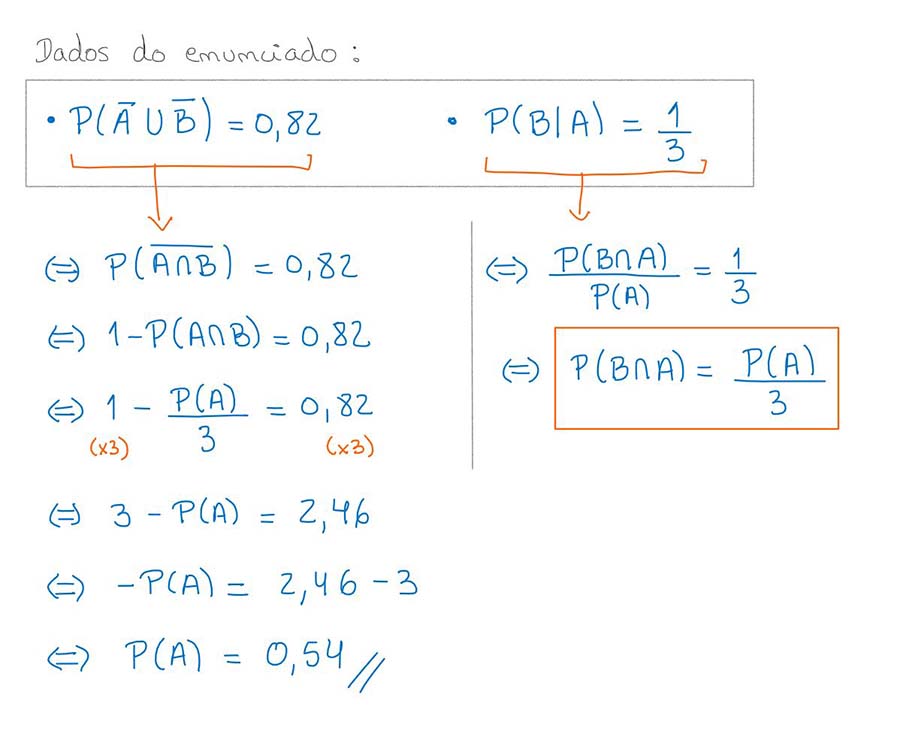 Dados do enunciado :
• P(A̅ ∪ B̅) = 0,82
• P(B|A) = 1/3
⇔ P(A̅∩̅B̅) = 0,82
⇔ 1-P(A∩B) = 0,82
⇔ 1 - P(A)/3 = 0,82
(x3) (x3)
⇔ 3 - P(A) = 2,46
⇔ -P(A) = 2,46 - 3
⇔ P(A) = 0,54 //
⇔ P(B∩A)/P(A) = 1/3
⇔ P(B∩A) = P(A)/3